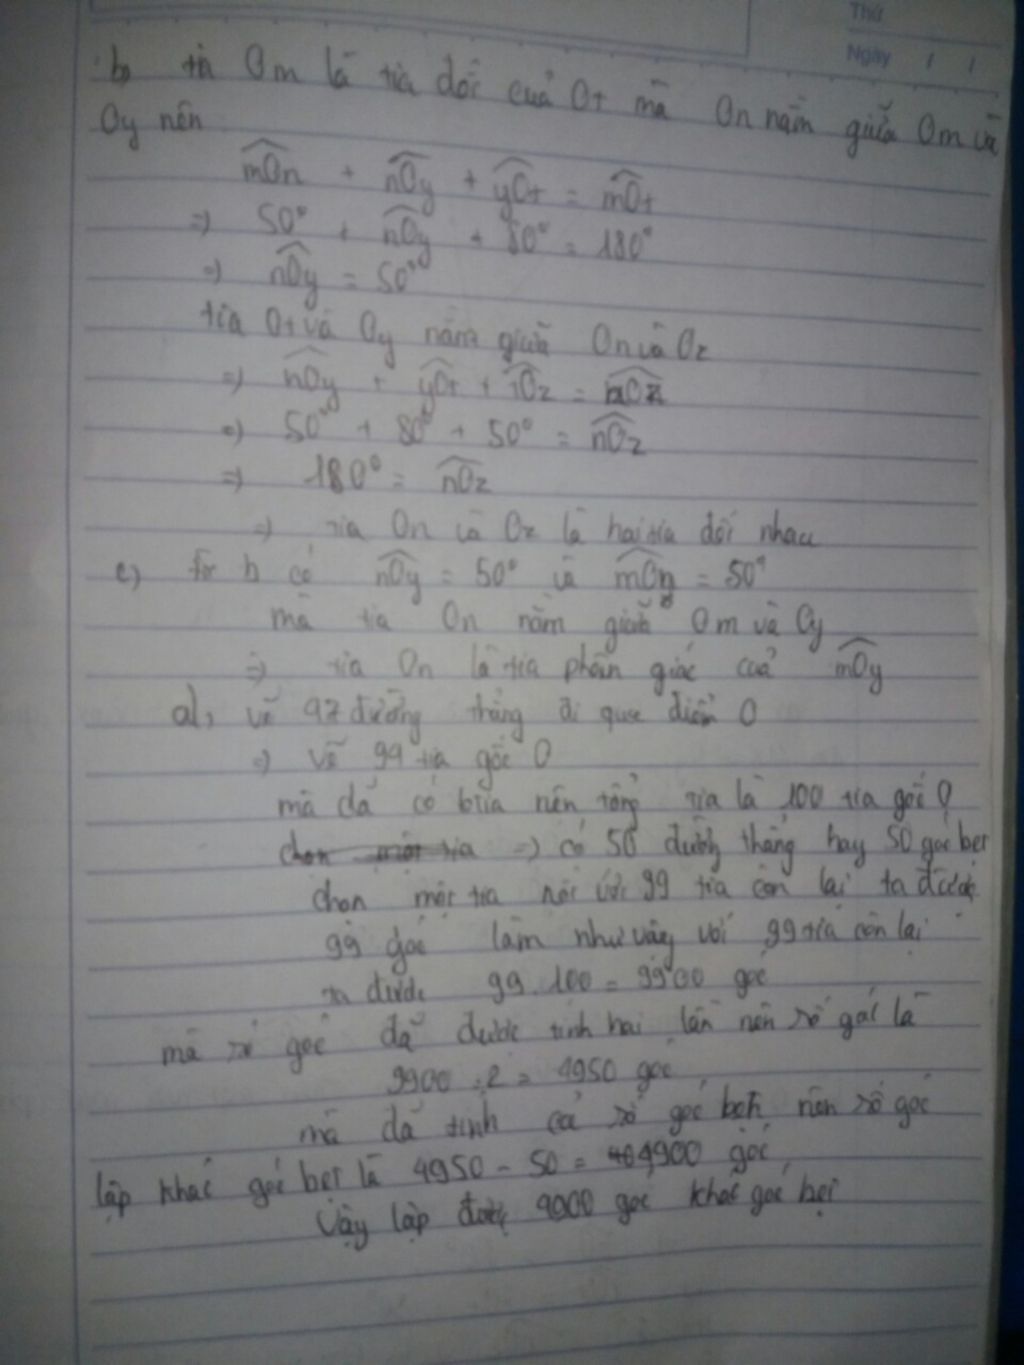 Thứ
Ngày / /
b, tia Om là tia đối của Ot mà On nằm giữa Om và
Oy nên
mOn + nOy + yOt = mOt
=> 50° + nOy + 80° = 180°
=> nOy = 50°
tia Ot và Oy nằm giữa On và Oz
=> nOy + yOt + tOz = nOz
=> 50° + 80° + 50° = nOz
=> 180° = nOz
=> tia On và Oz là hai tia đối nhau
c) từ b có nOy = 50° và mOn = 50°
mà tia On nằm giữa Om và Oy
=> tia On là tia phân giác của mOy
d, vẽ 97 đường thẳng đi qua điểm O
=> vẽ 99 tia gốc O
mà đã có tia nên tổng tia là 100 tia gốc O
chọn một tia => có 50 đường thẳng hay 50 góc bẹt
chọn một tia nối với 99 tia còn lại ta được
99 góc làm như vậy với 99 tia còn lại
ta được 99.100 = 9900 góc
mà số góc đã được tính hai lần nên số góc là
9900 : 2 = 4950 góc
mà đã tính cả số góc bẹt nên số góc
lập khác góc bẹt là 4950 - 50 = 4900 góc
Vậy lập được 9000 góc khác góc bẹt